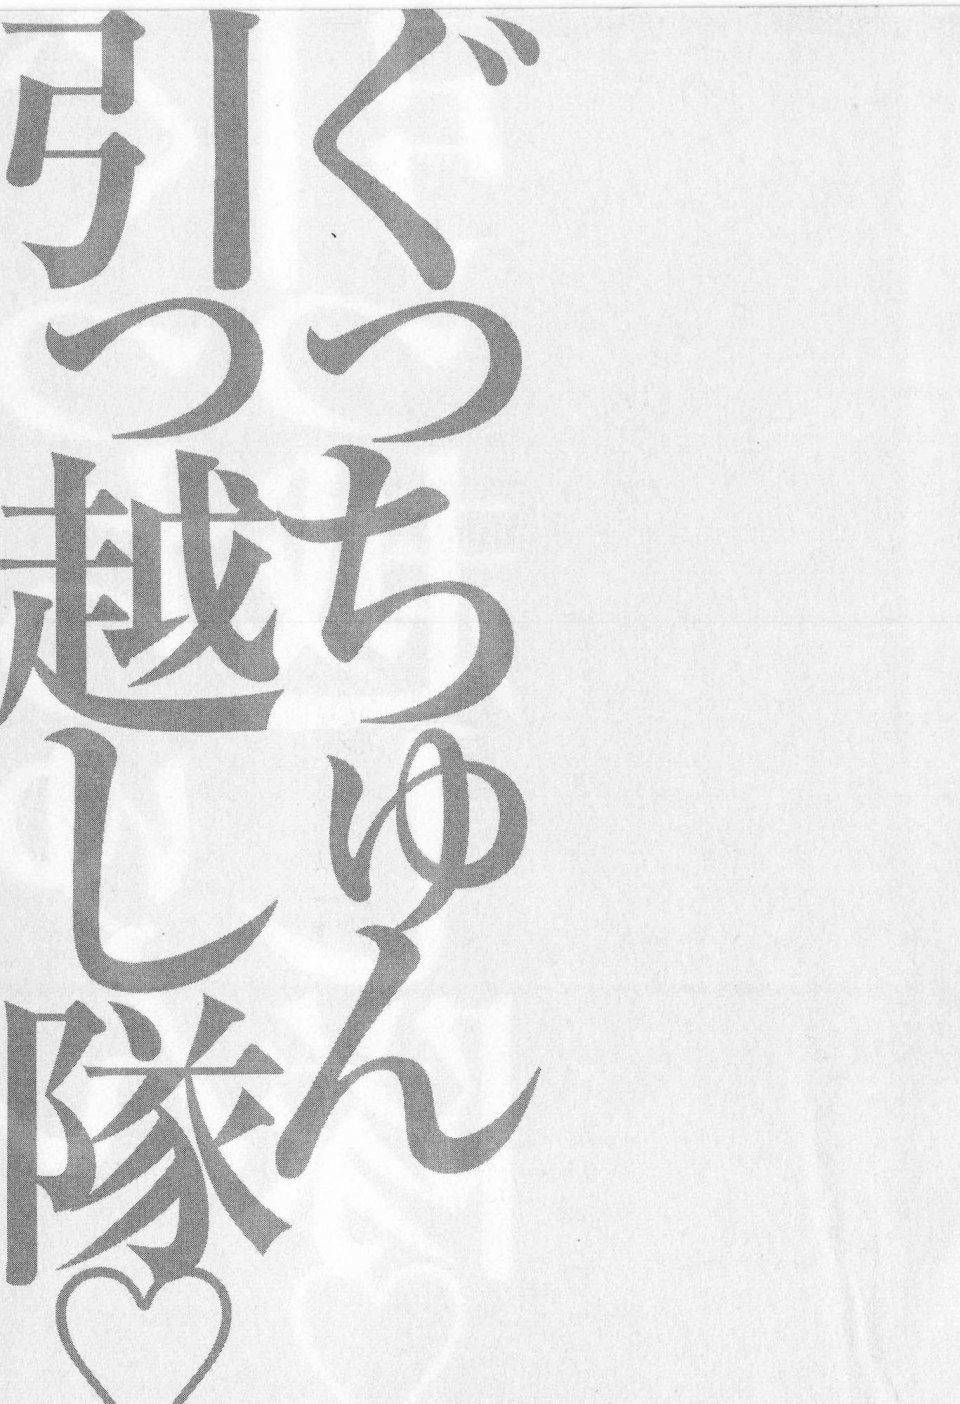 ぐっちゅん
引っ越し隊♡